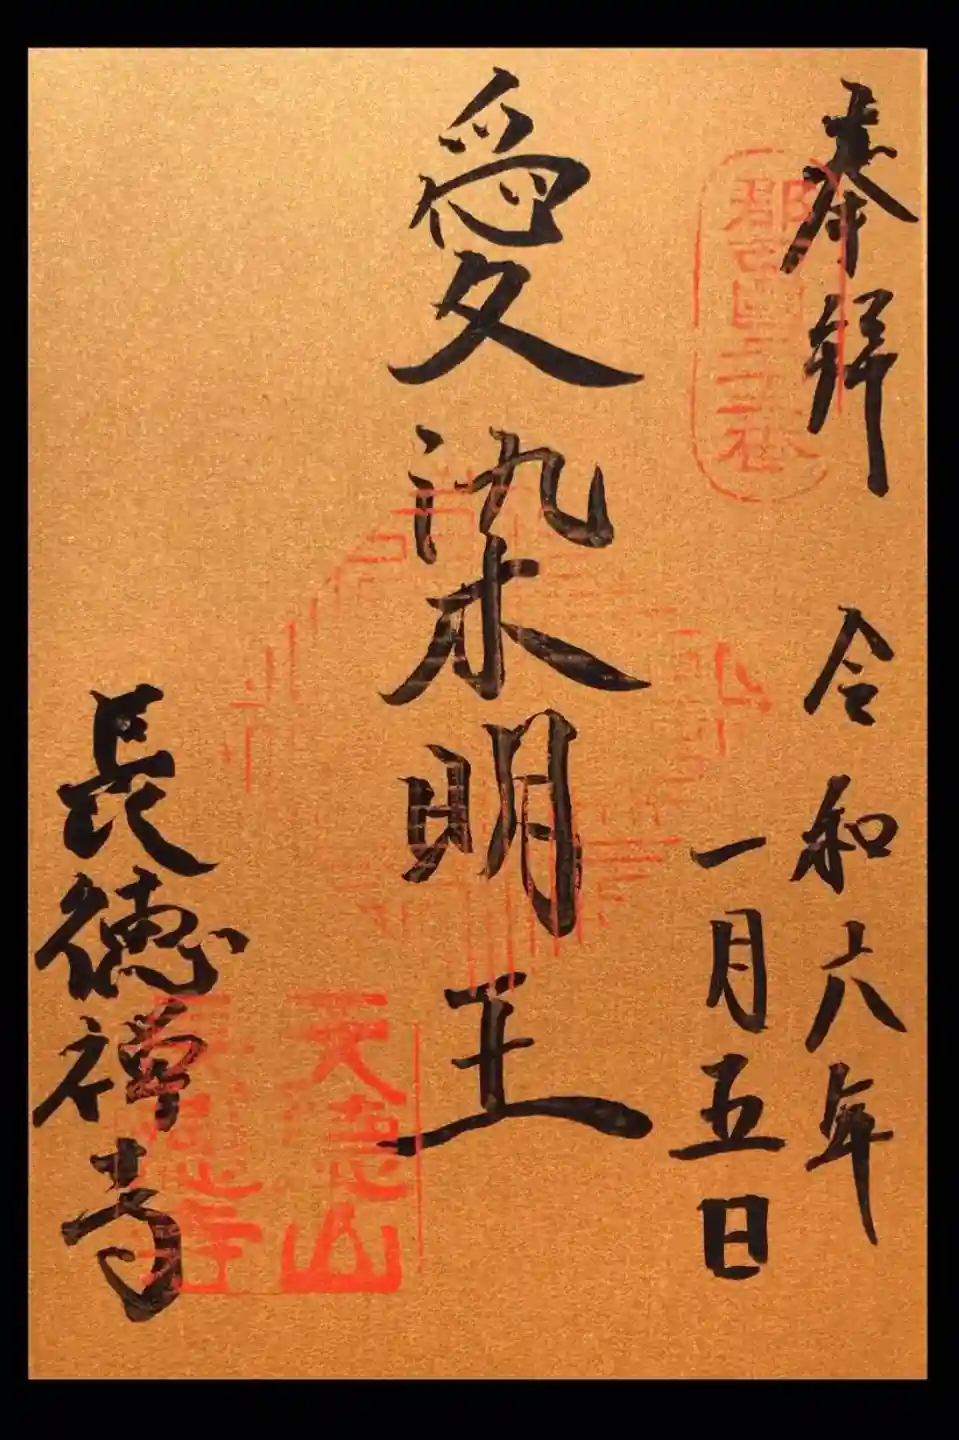 奉拝　令和六年
一月五日
愛染明王
長徳禅寺
天徳山